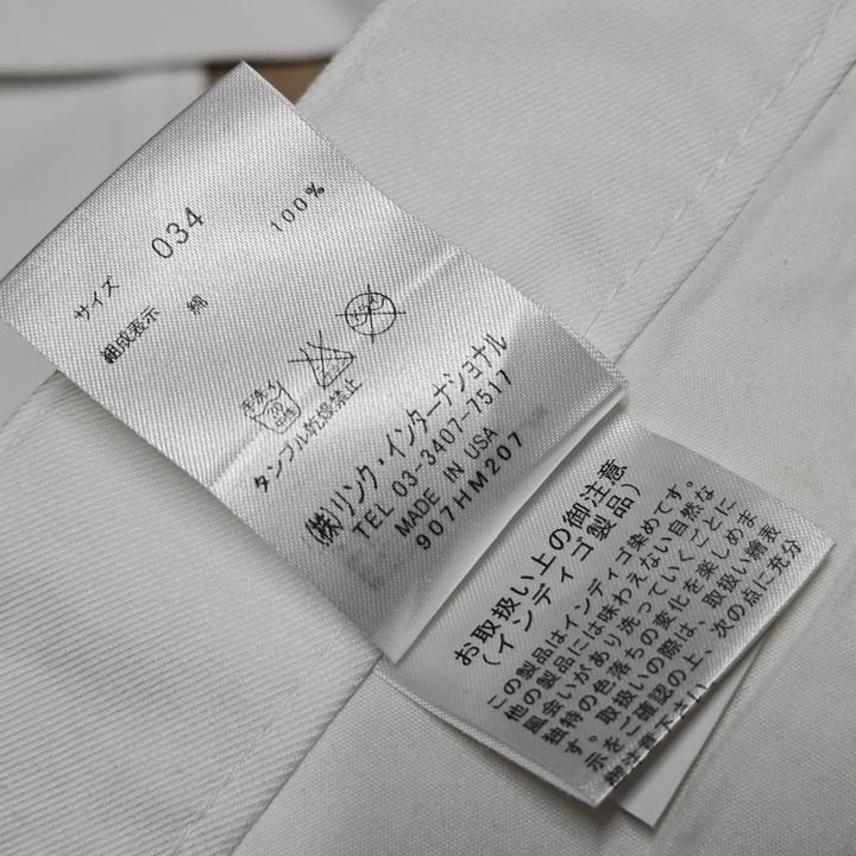 サイズ 034
組成表示 綿 100%
手洗イ 30 中性
エンソ サラシ
ドライ
タンブル乾燥禁止
(株)リンク・インターナショナル
TEL 03-3407-7517
MADE IN USA
907HM207
お取扱い上の御注意
(インディゴ製品)
この製品はインディゴ染めてす。
他の製品には味わえない自然な
風会いがあり洗っていくごとに
独特の色落ちの変化を楽しめま
す。取扱いの際は、取扱い繪表
示をご確認の上、次の点に充分
御注意下さい